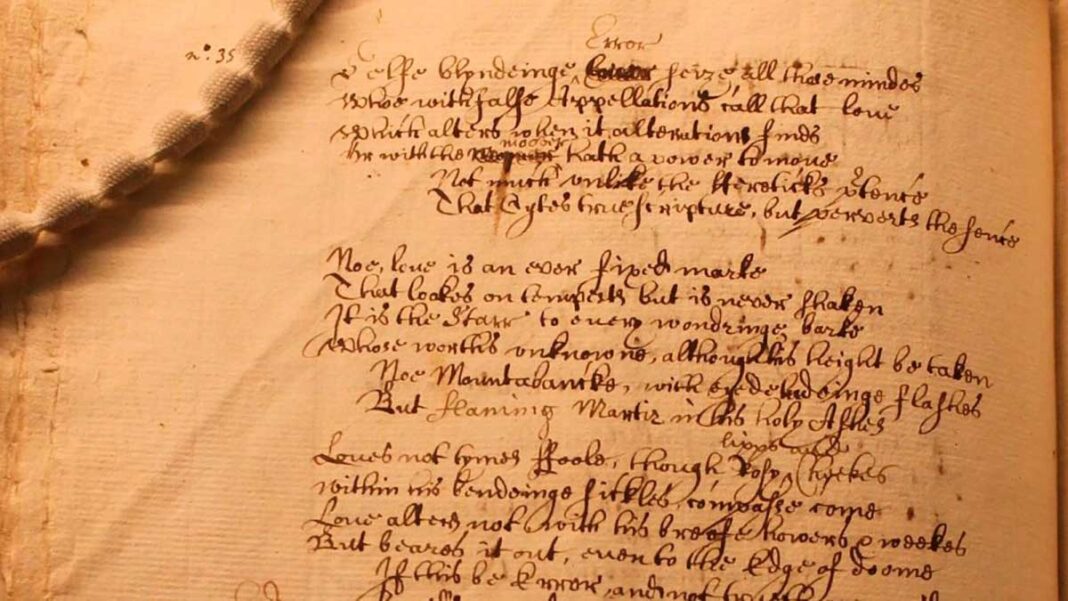 Error
n°. 35
Selfe blyndeinge seize all those mindes
Whoe with false Appellations call that love
Which alters when it alterations finds
moover
Or with the hath a power to move
Not much unlike the Heretickes p'tence
That Cytes true Scripture, but perverts the sence
Noe, love is an ever fixed marke
That lookes on tempests but is never shaken
It is the Starr to every wondringe barke
Whose worth's unknowne, although his height be taken
Noe Mountabancke, with eyedeludeinge flashes
But flaming Martir in his holy Ashes
lipps and
Loves not tymes Foole, though Rosy Cheekes
within his bendeinge sickles compasse come
Love alters not with his breife howers & weekes
But beares it out, even to the Edge of doome
If this be Error, and not